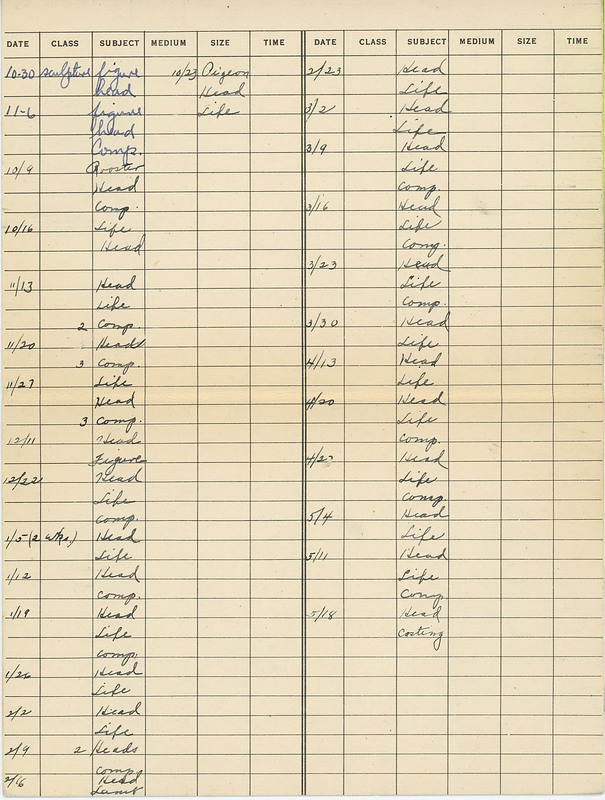 DATE CLASS SUBJECT MEDIUM SIZE TIME
10-30 sculpture figure 10/23 Pigeon
head Head
11-6 figure Life
head
Comp.
10/9 Rooster
Head
Comp.
10/16 Life
Head
11/13 Head
Life
2 Comp.
11/20 Heads
3 Comp.
11/27 Life
Head
3 Comp.
12/11 Head
Figure
12/22 Head
Life
Comp.
1/5 (2 wks.) Head
Life
1/12 Head
Comp.
1/19 Head
Life
Comp.
1/26 Head
Life
2/2 Head
Life
2/9 2 Heads
Comp.
2/16 Head
DATE CLASS SUBJECT MEDIUM SIZE TIME
2/23 Head
Life
3/2 Head
Life
3/9 Head
Life
Comp.
3/16 Head
Life
Comp.
3/23 Head
Life
Comp.
3/30 Head
Life
4/13 Head
Life
4/20 Head
Life
Comp.
4/27 Head
Life
Comp.
5/4 Head
Life
5/11 Head
Life
Comp.
5/18 Head
Casting